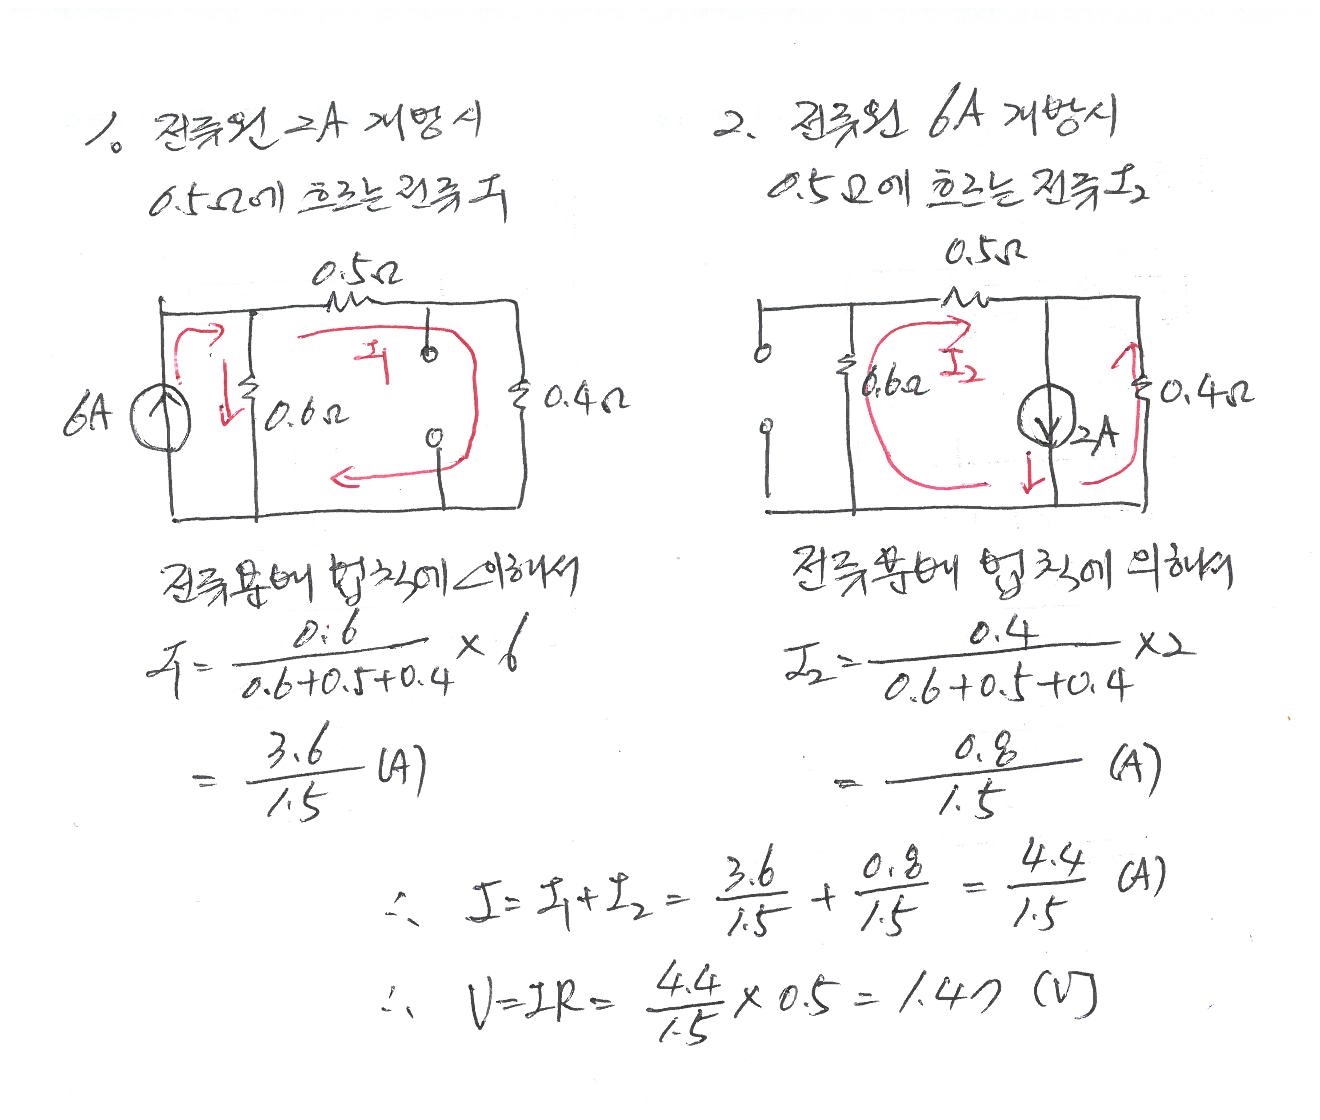 1. 전류원 2A 개방시
0.5Ω에 흐르는 전류 I₁
0.5Ω
I₁
6A
0.6Ω
0.4Ω
전류분배 법칙에 의해서
I₁ = 0.6 / (0.6+0.5+0.4) × 6
= 3.6 / 1.5 (A)
2. 전류원 6A 개방시
0.5Ω에 흐르는 전류 I₂
0.5Ω
I₂
0.6Ω
2A
0.4Ω
전류분배 법칙에 의해서
I₂ = 0.4 / (0.6+0.5+0.4) × 2
= 0.8 / 1.5 (A)
∴ I = I₁ + I₂ = 3.6 / 1.5 + 0.8 / 1.5 = 4.4 / 1.5 (A)
∴ V = IR = 4.4 / 1.5 × 0.5 = 1.47 (V]